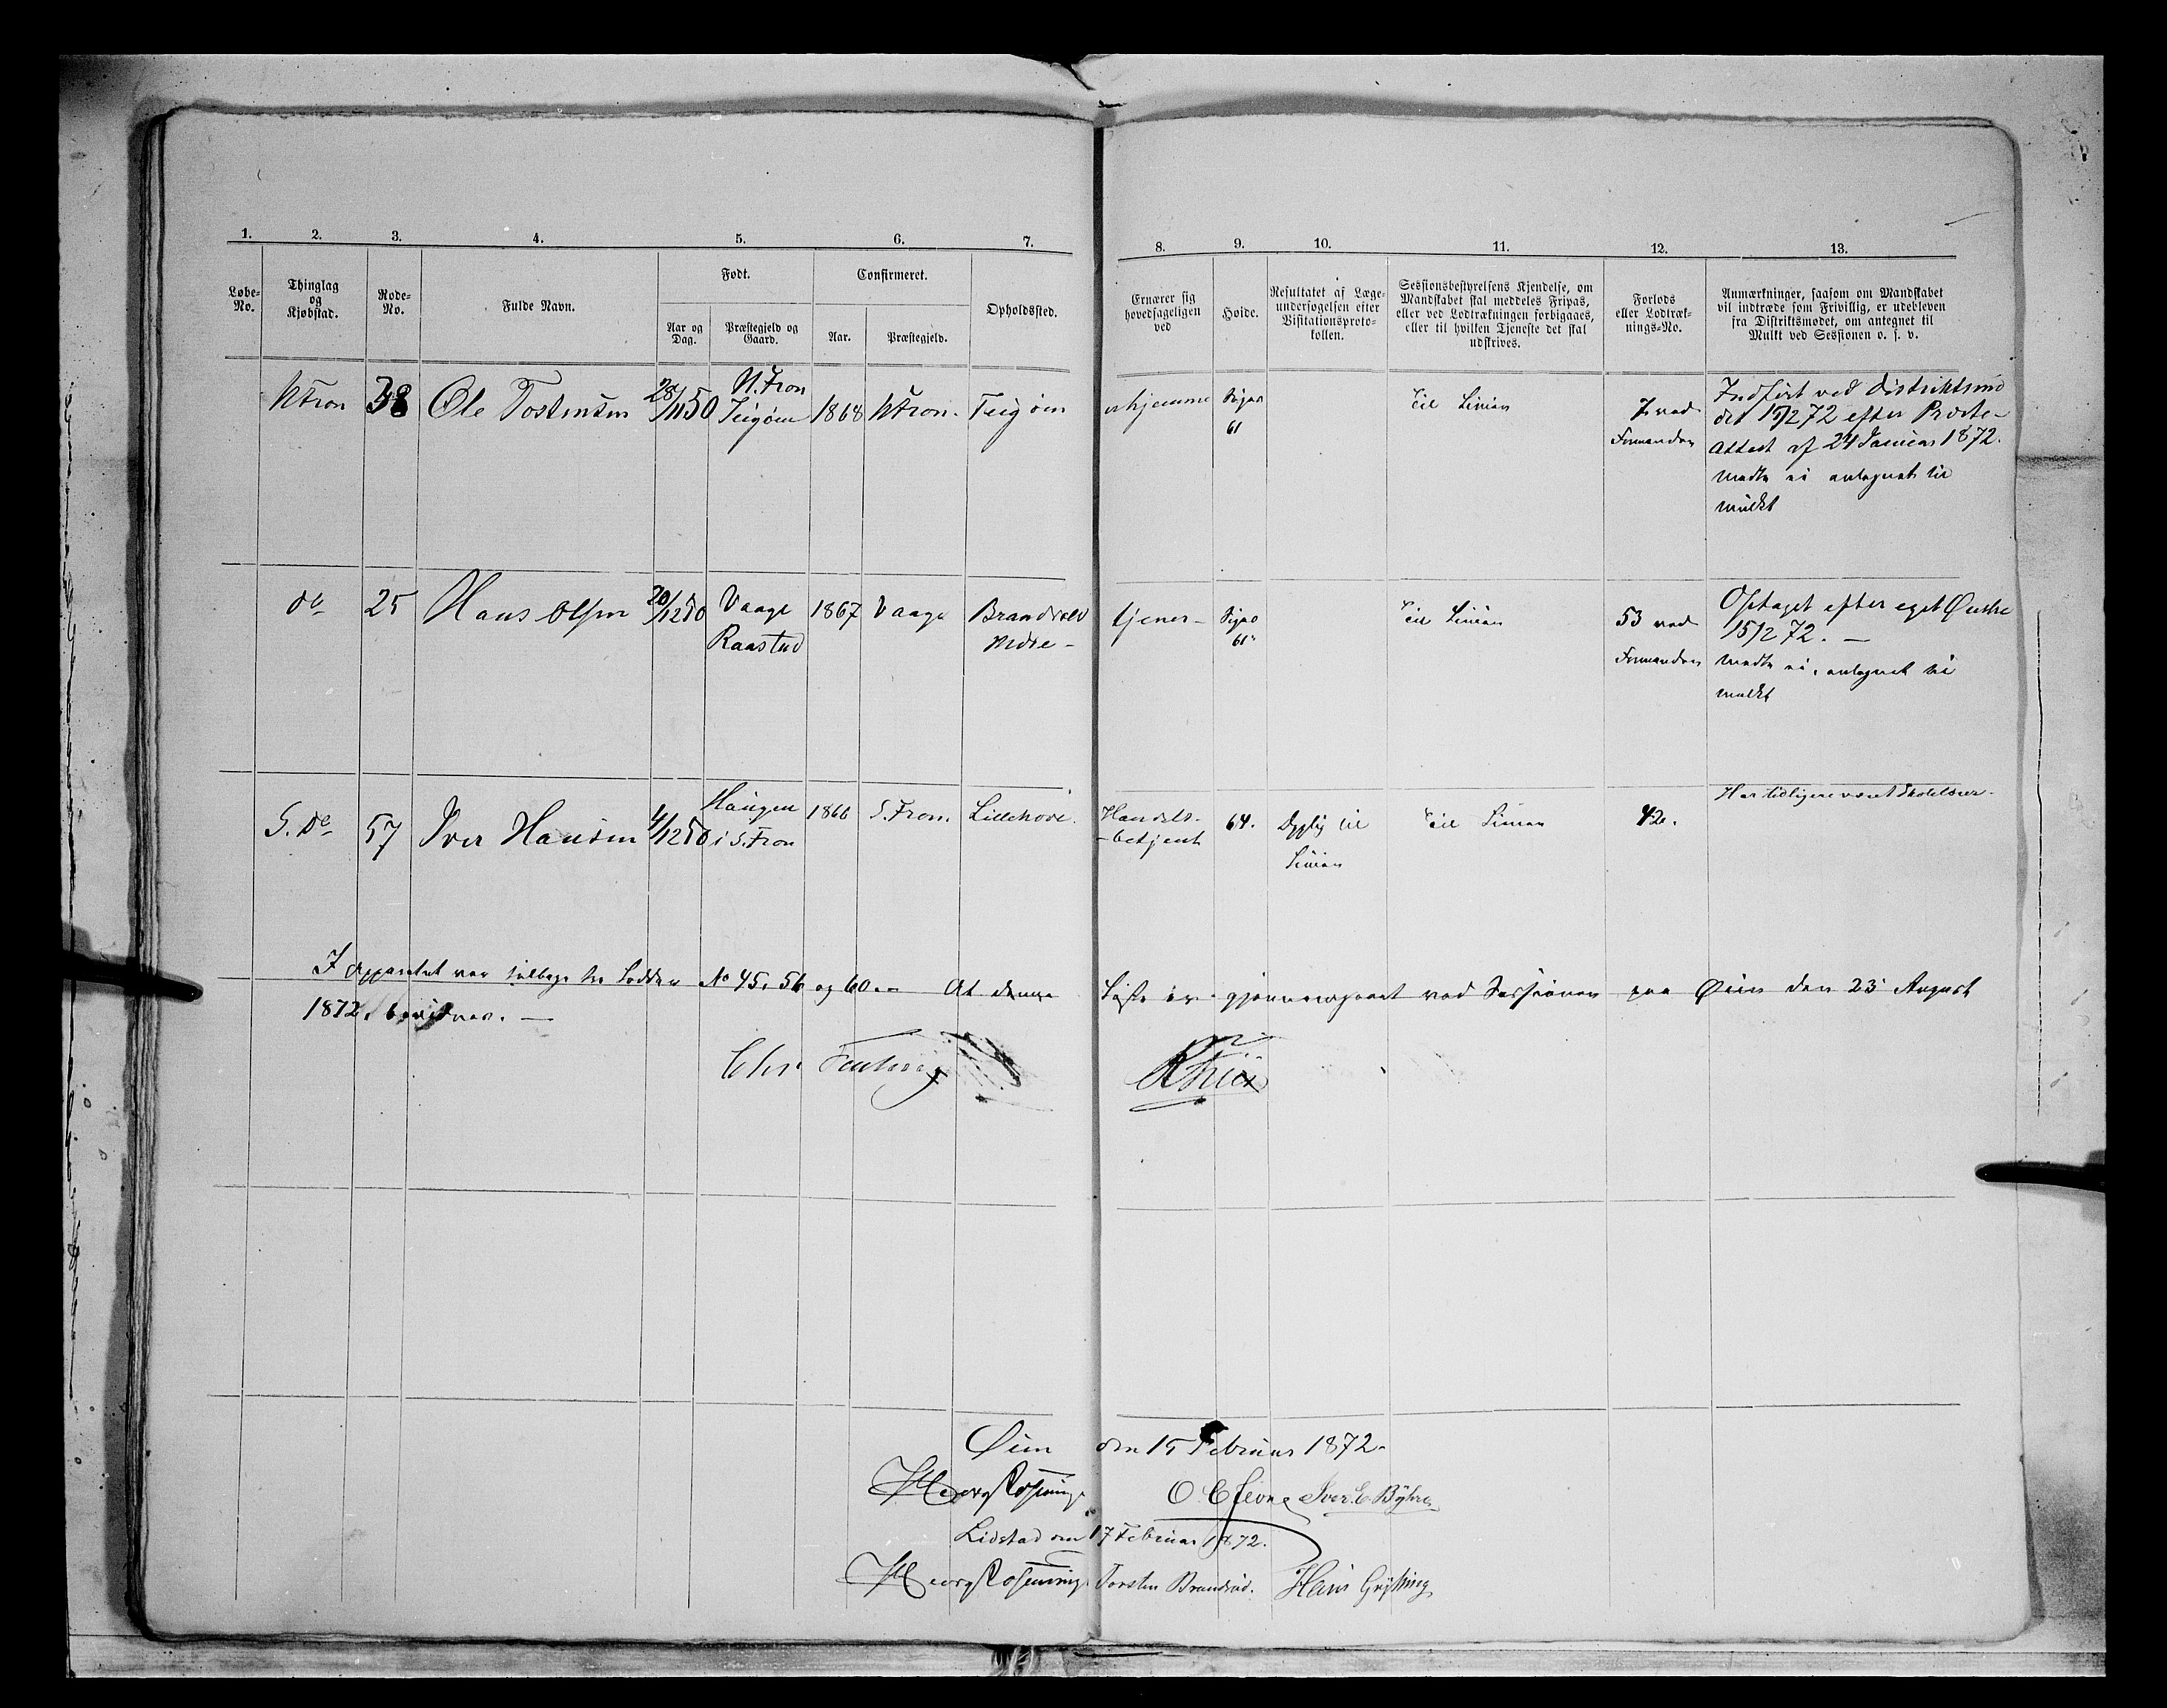 1. 2. 3. 4. 5. 6. 7. 8. 9. 10. 11. 12. 13.
Løbe-No.
Thinglag og Kjøbstad.
Rode-No.
Fulde Navn.
Født.
Aar og Dag.
Præstegjeld og Gaard.
Confirmeret.
Aar.
Præstegjeld.
Opholdssted.
Ernærer sig hovedsageligen ved
Høide.
Resultatet af Læge-undersøgelsen efter Visitationsproto-kollen.
Sessionsbestyrelsens Kjendelse, om Mandskabet skal meddeles Fripas, eller ved Lodtrækningen forbigaaes, eller til hvilken Tjeneste det skal udskrives.
Forlods eller Lodtræk-nings-No.
Anmærkninger, saasom om Mandskabet vil indtræde som Frivillig, er udebleven fra Distriktsmødet, om antegnet til Mulkt ved Sessionen o. s. v.
N Fron 38 Ole Tostensen 28/11 50 N. Fron 1868 N Fron. hjemme 61 Til Linien 7 ved Formanden
Indført ved Distriktsmø
det 15/2 72 efter Præste-
Attest af 24 Januar 1872.
mødte ei antegnet til
mulkt
do 25 Hans Olsen 20/12 50 Vaage Raastad 1867 Vaage Brandvold nedre - tjener - 61" Til Linien 53 ved Formanden
Optaget efter eget Ønske
15/2 72. —
mødte ei, antegnet til
mulkt
S. do 57 Iver Hansen 4/12 50 Haugen i S. Fron 1866 S. Fron. Lillehove. Handels-betjent 64. Dygtig til Linien Til Linien 42.
Har tidligere været Skolelærer.
I Apparatet var tilbage Lodder No 45, 56 og 60. — At denne Liste er gjennemgaaet ved Sessionen paa Øien den 23 August
1872, bevidnes. —
Chr
Øien den 15 Februar 1872.
Lidstad den 17 Februar 1872.
Torsten Hans